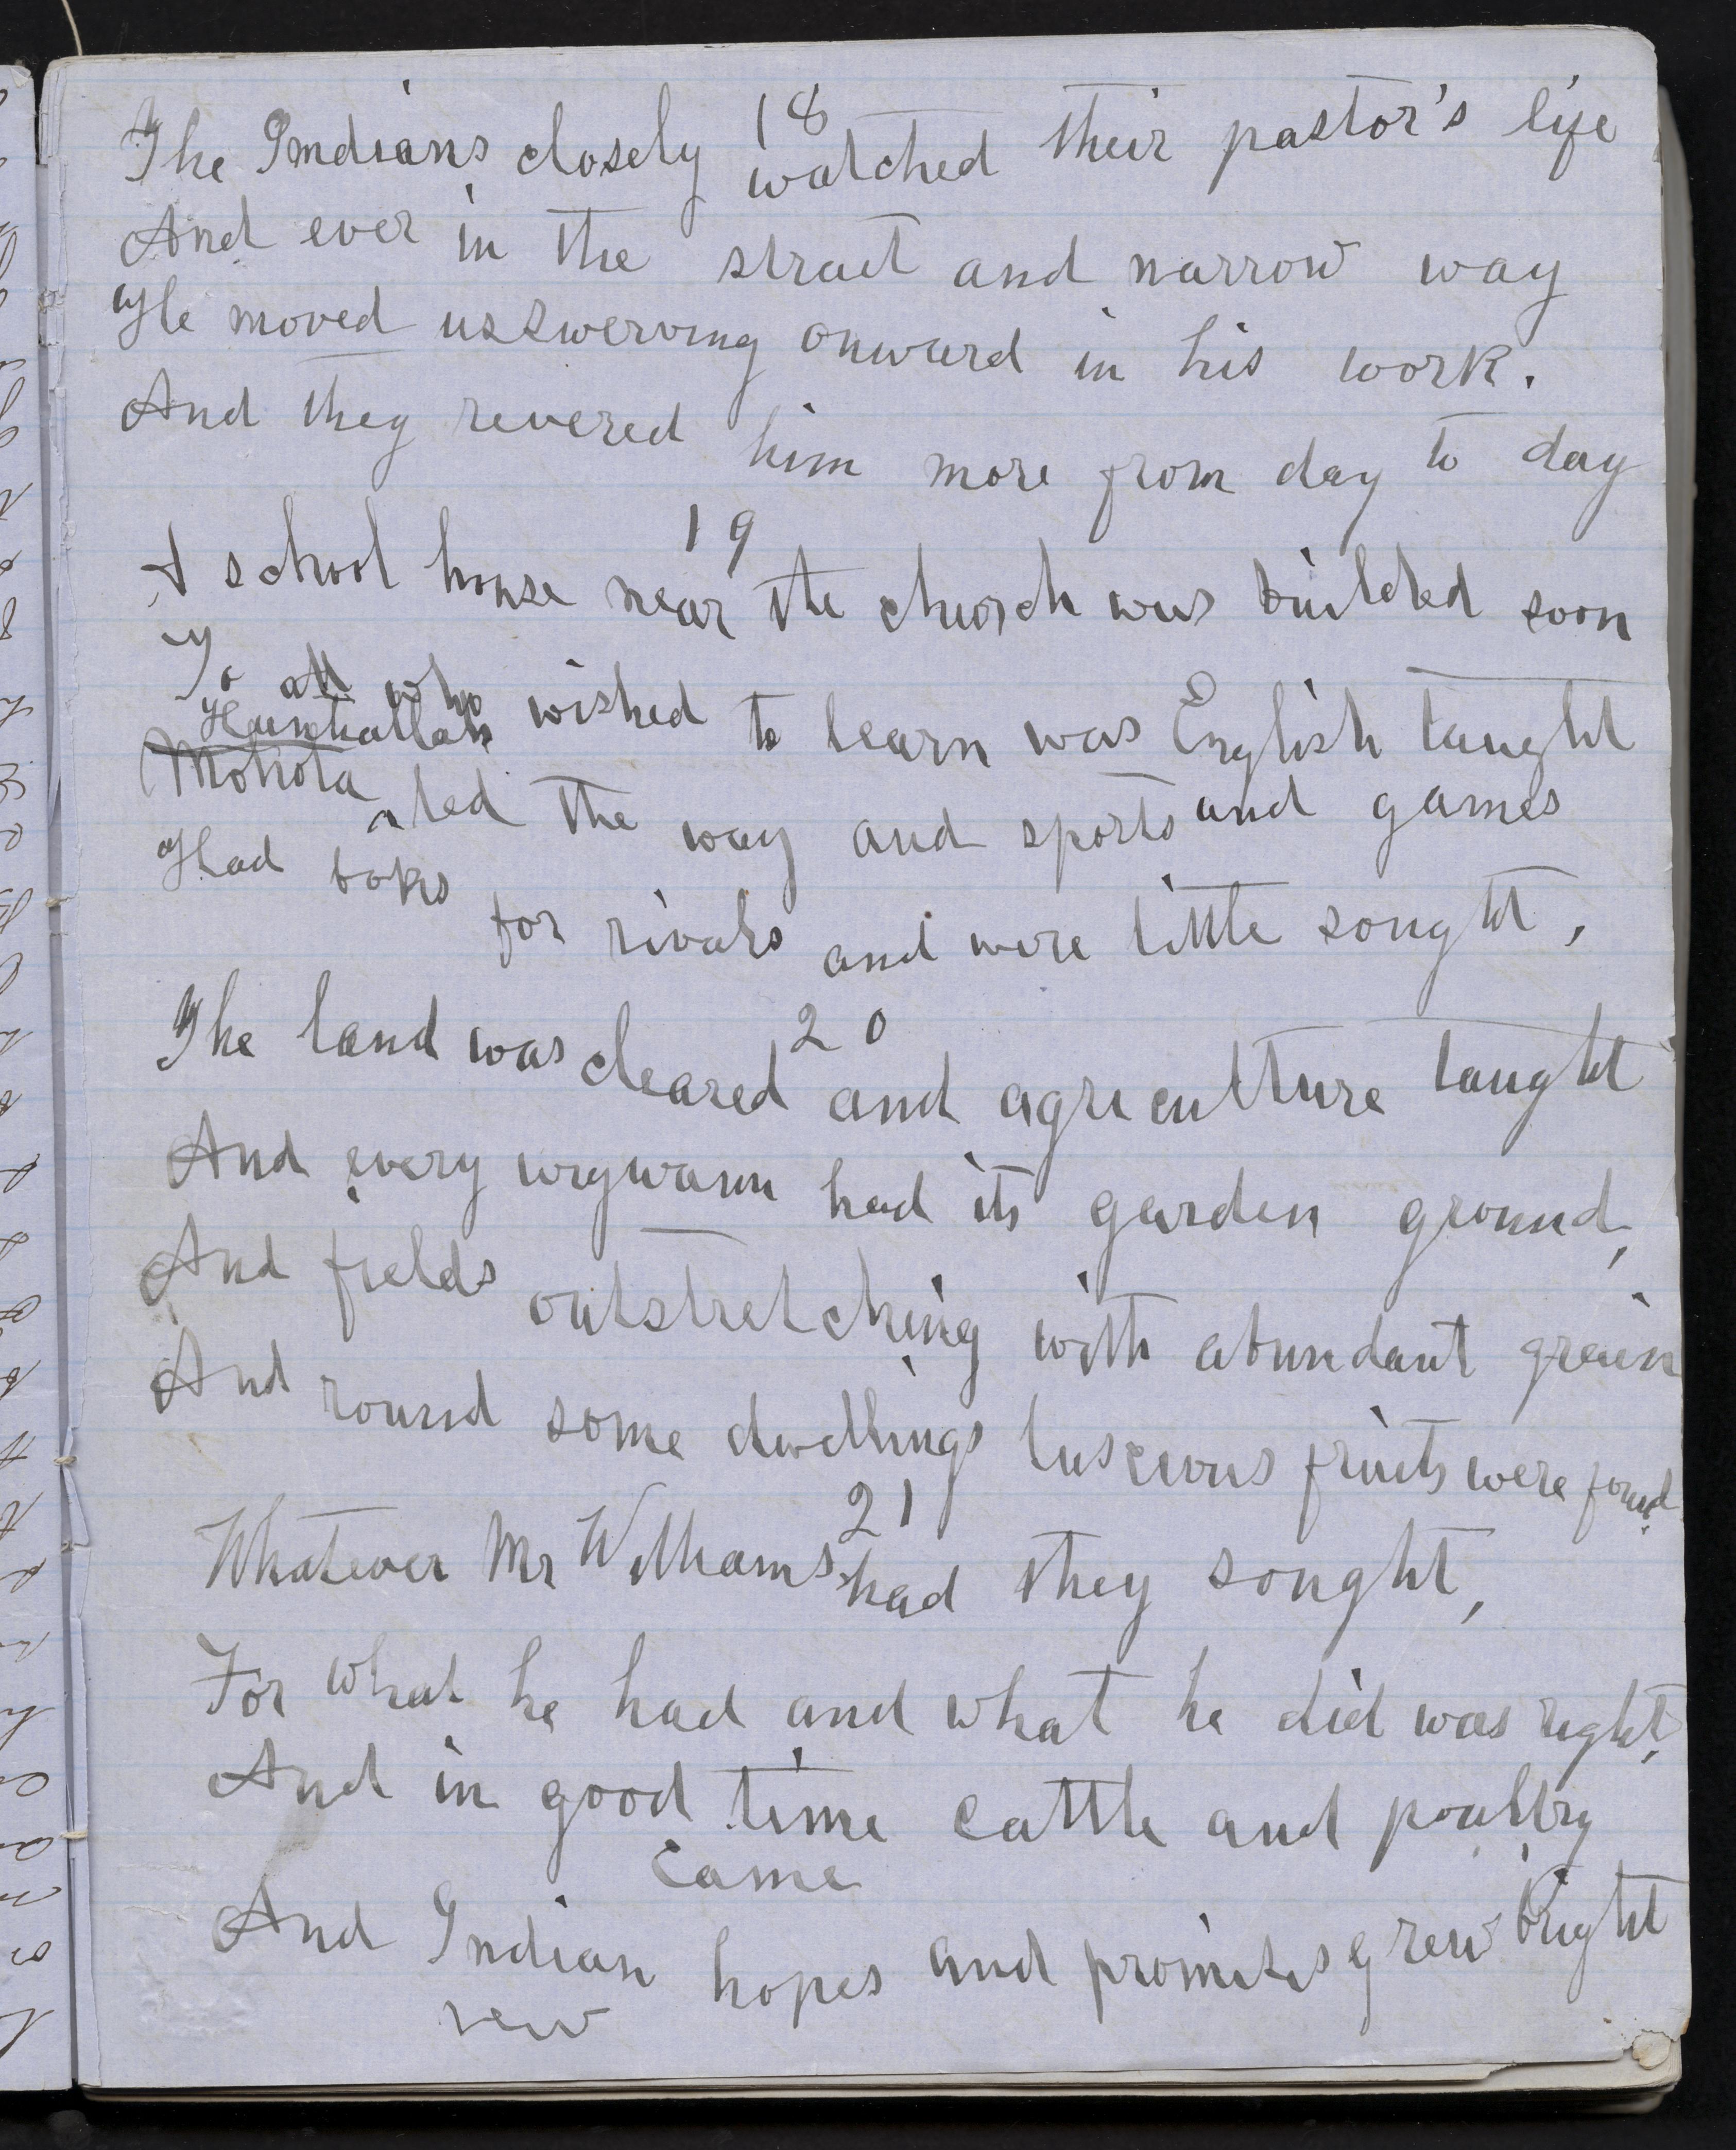 18
The Indians closely watched their pastor's life
And ever in the strait and narrow way
He moved unswerving onward in his work.
And they revered him more from day to day
19
A school house near the church was builded soon
To all who wished to learn was English taught
led the way and sports and games
Had boks for rivals and were little sought,
20
The land was cleared and agriculture taught
And every wigwam had its garden ground,
And fields outstretching with abundant grain
And round some dwellings luscious fruits were found.
21
Whatever Mr Williams had they sought,
For what he had and what he did was right,
And in good time cattle and poultry
came
And Indian hopes and promises grew bright
new